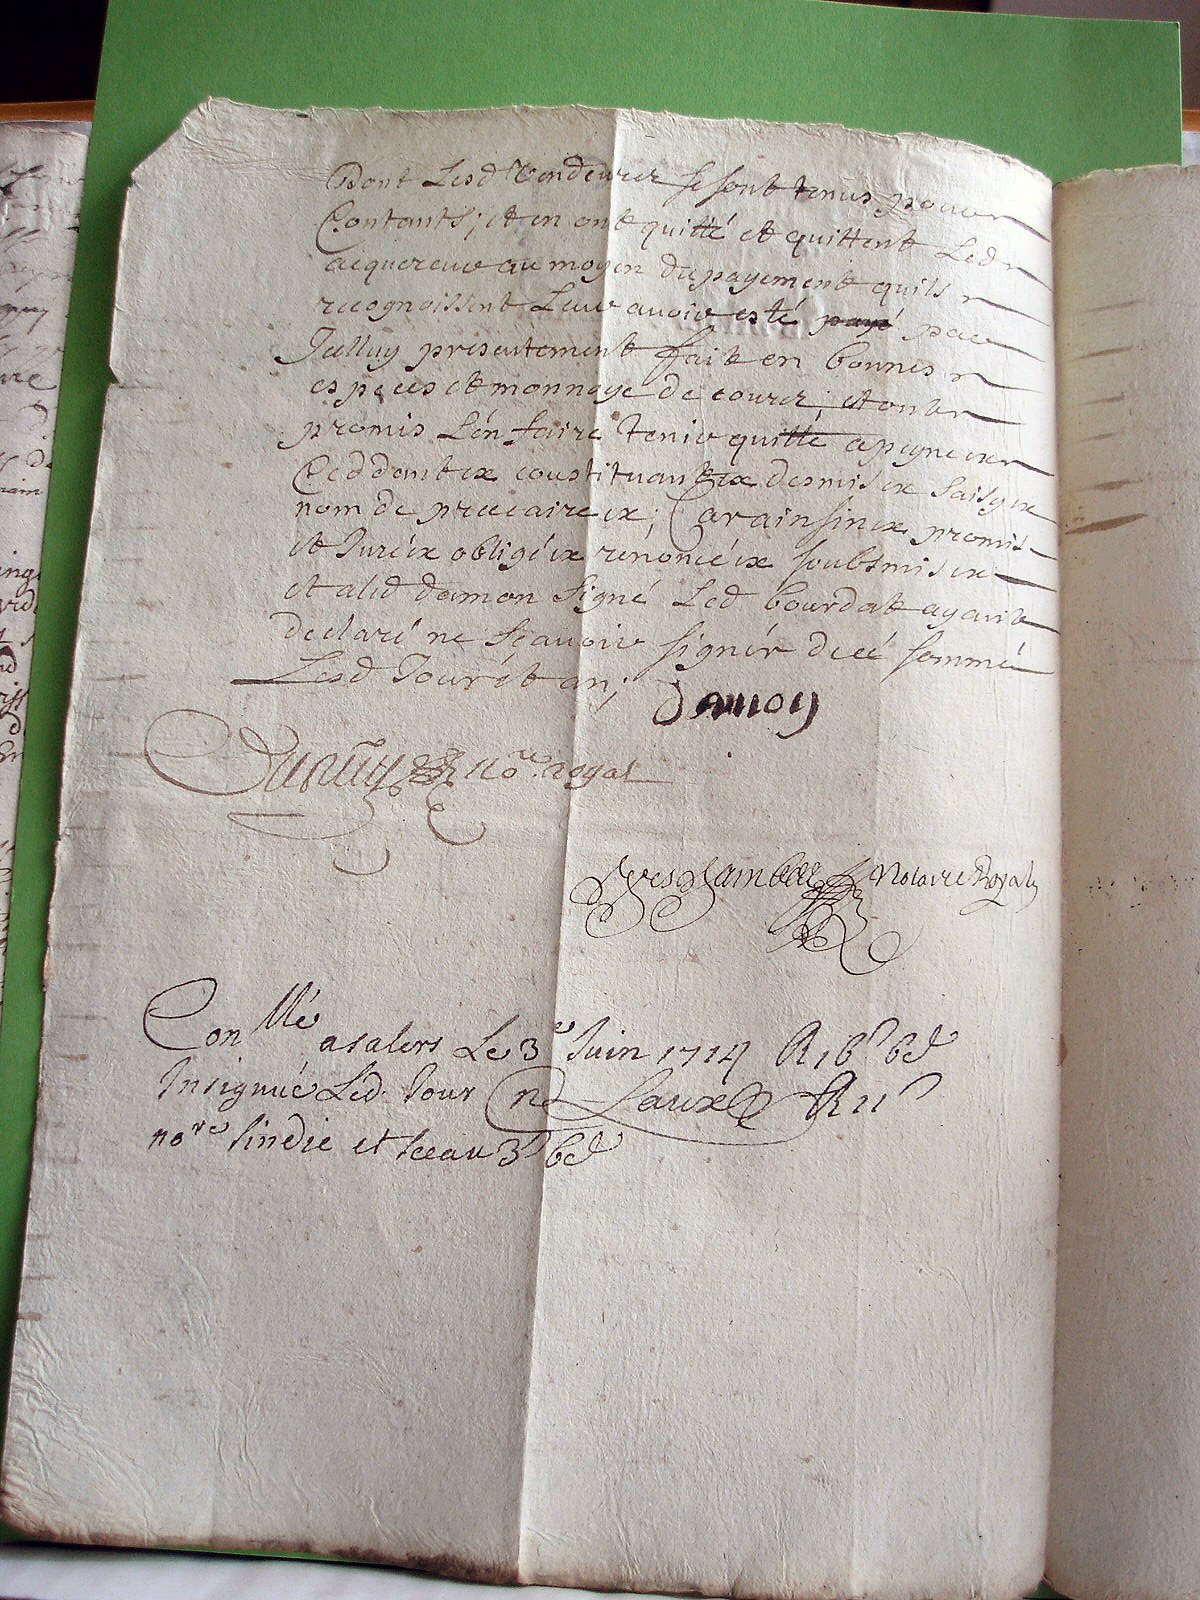 Dont Lesd Vendeurs se sont tenus pour
Contants; et en ont quitté et quittent Led
acquereur au moyen du payement quils
recognoissent Leur avoir esté payé par
Jcelluy presentement fait en bonnes
espèces et monnoye de cours; et ont
promis L'en faire tenir quitte a peyne &c
Ceddant &c constituant &c desmis &c saisy &c
nom de precaire &c; Car ainsin &c promis
et Juré &c obligé &c renoncé &c soubsmis &c
et aled damon signé Led bourdat ayant
declaré ne scavoir signér de cé sommé
Lesd Jour et an;
damon
Dupuy no.re royal
Notaire Royal
Con.llé a salers Le 3e Juin 1714 R 16s 6d
Insignué Led. Jour R 11s
no.re sindic et sceau 3s 6d